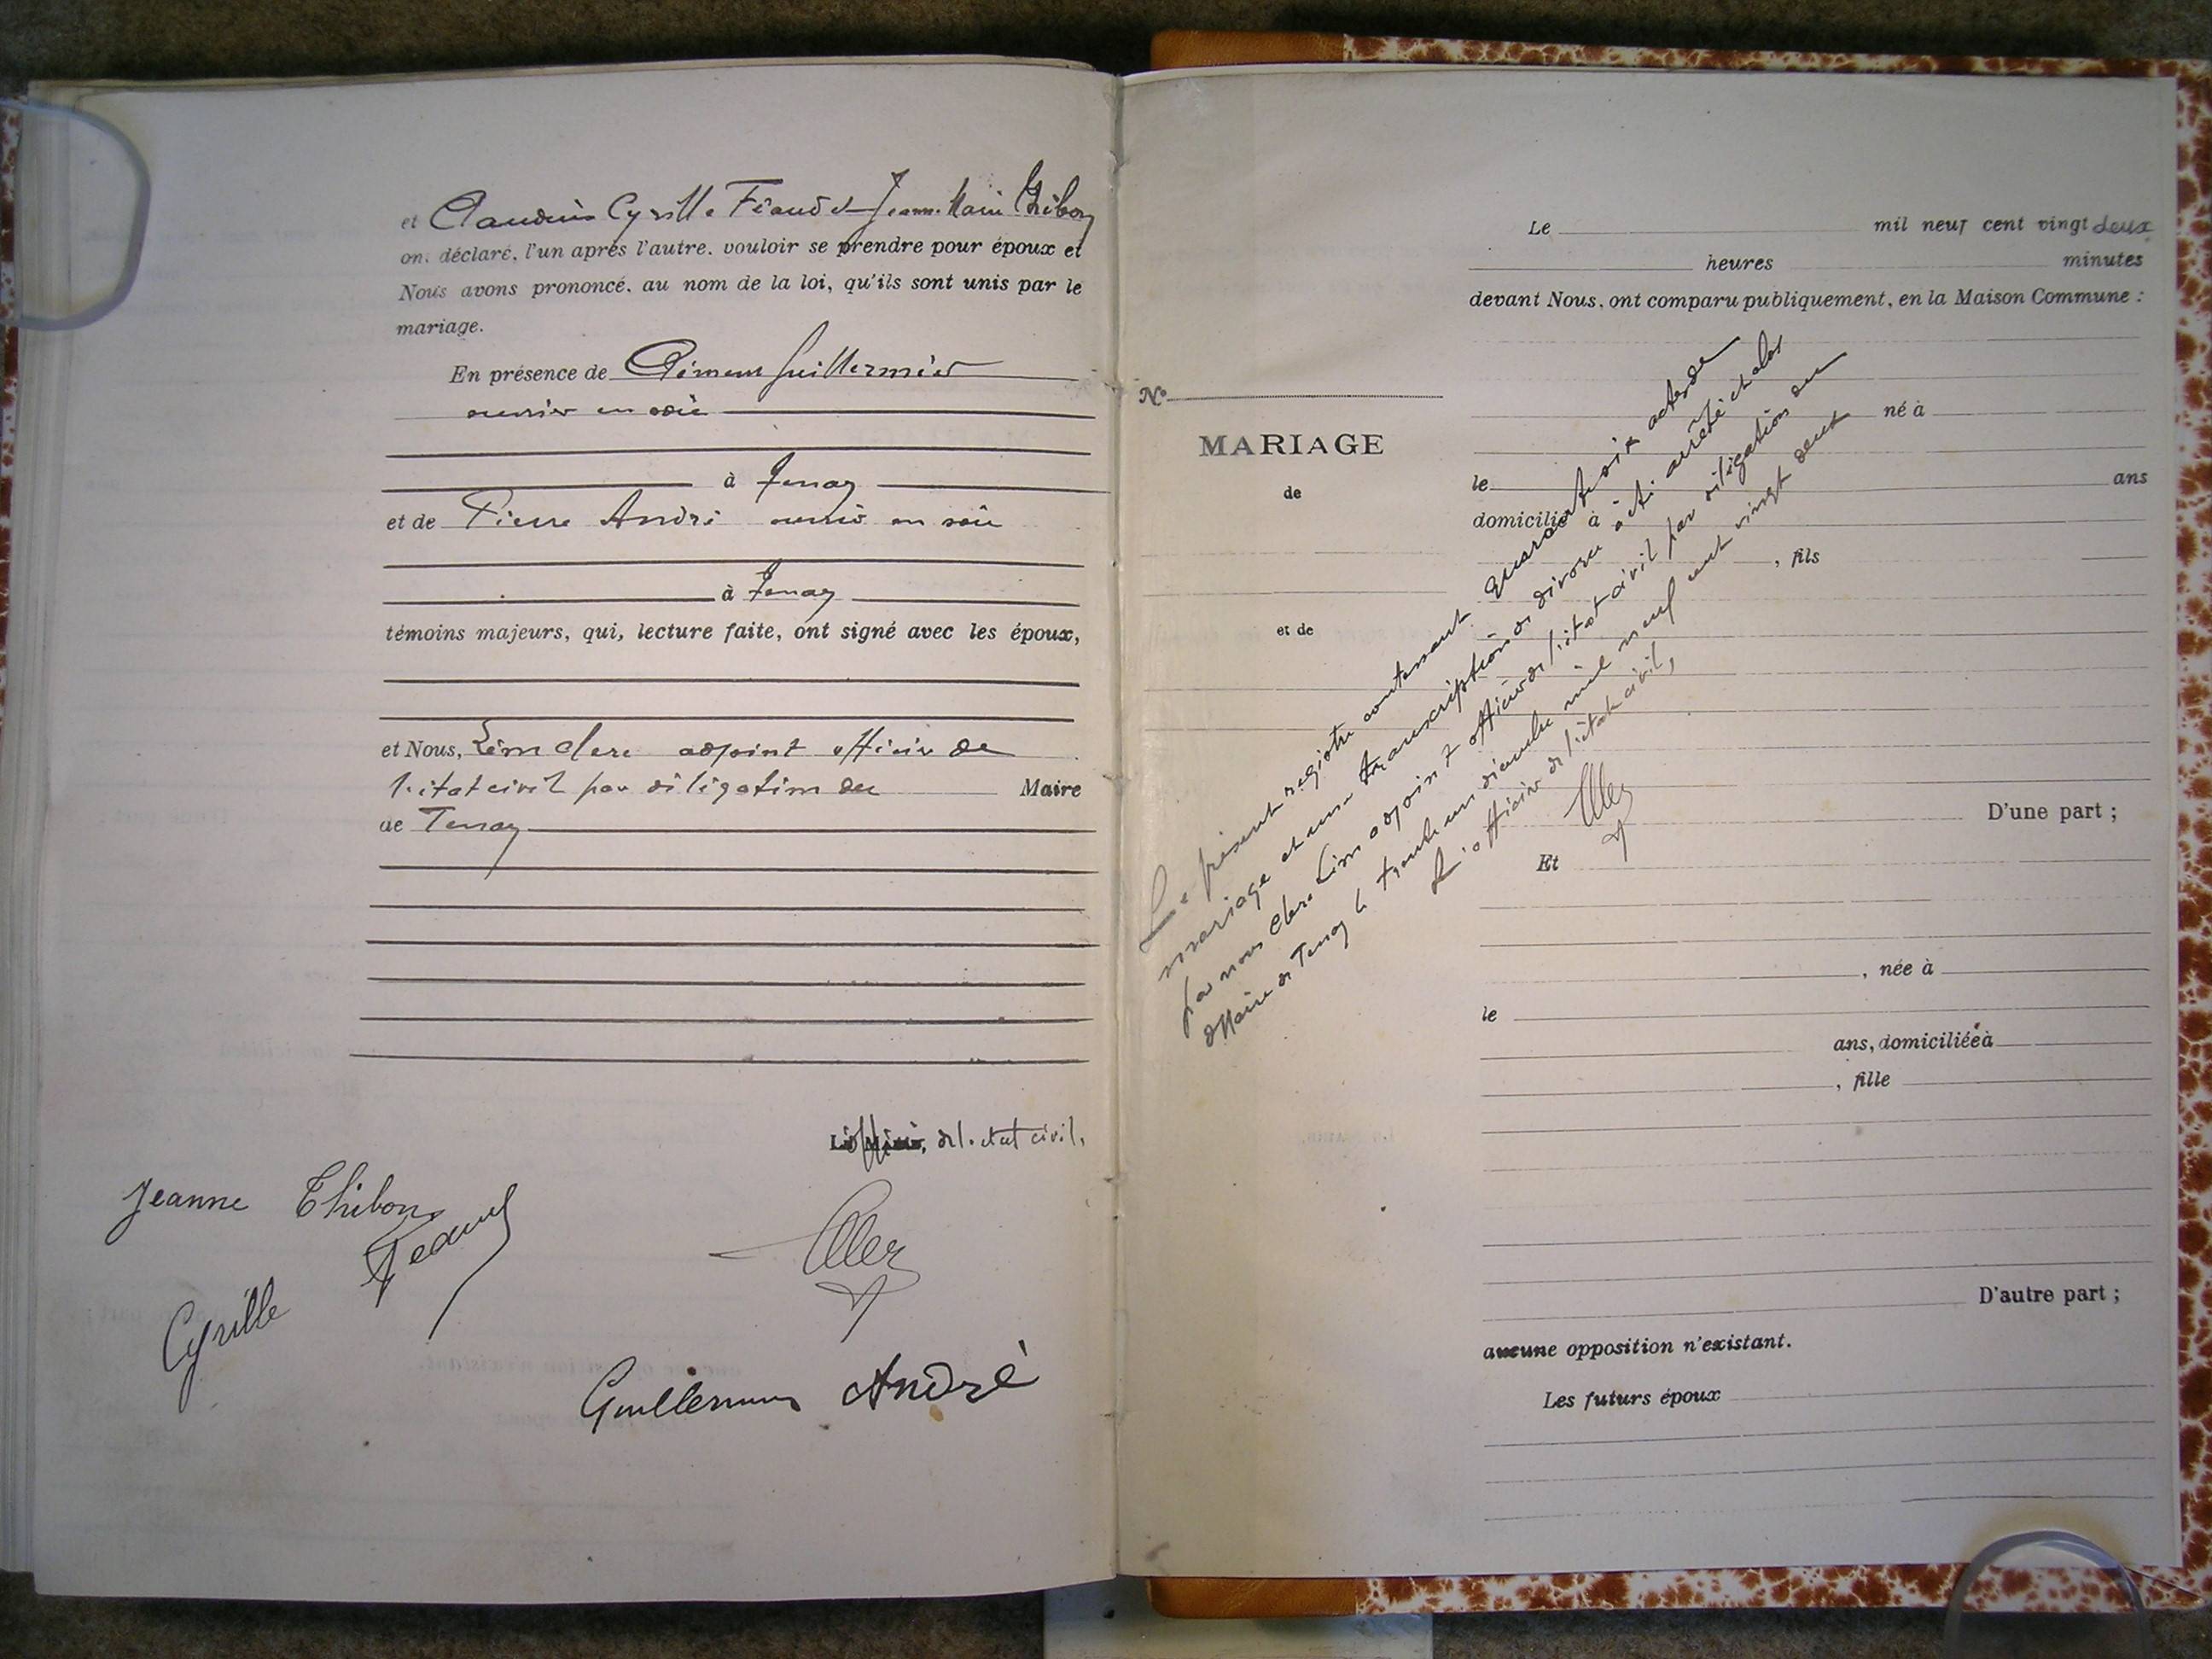 et Claudius Cyrille Féaud et Jeanne Marie Thibon
ont déclaré, l'un après l'autre, vouloir se prendre pour époux et
Nous avons prononcé, au nom de la loi, qu'ils sont unis par le
mariage.
En présence de Guillermin
ouvrier en soie
à Tenay
et de Pierre André ouvrier en soie
à Tenay
témoins majeurs, qui, lecture faite, ont signé avec les époux,
et Nous, Léon Clerc adjoint officier de
l'état civil par délégation du Maire
de Tenay
L'officier de l'état civil,
Jeanne Thibon
Cyrille Feaud
Guillermin André
Le mil neuf cent vingt deux
heures minutes
devant Nous, ont comparu publiquement, en la Maison Commune :
N°
MARIAGE
de
et de
né à
le ans
domicilié à
, fils
D'une part ;
Et
, née à
le
ans, domiciliée à
, fille
D'autre part ;
aucune opposition n'existant.
Les futurs époux
Le présent registre contenant quarante six actes de
mariage et une transcription de divorce a été arrêté et clos
par nous Clerc Léon adjoint officier de l'état civil par délégation du
Maire de Tenay le trente un décembre mil neuf cent vingt deux
L'officier de l'état civil,